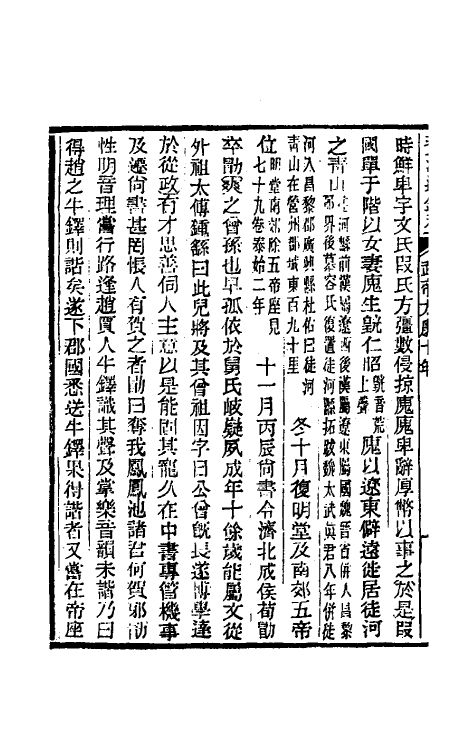 時鮮卑宇文氏叚氏方彊數侵掠廆廆卑辭厚幣以事之於是叚
國單于階以女妻廆生皝仁昭皝音荒上聲廆以遼東僻遠徙居徒河
之青山徒河縣前漢屬遼西後漢屬遼東屬國魏晉省併入昌黎郡界後慕容氏復置徒河縣拓跋魏太武眞君八年併徒
河入昌黎郡廣興縣杜佑曰徒河青山在營州郡城東百九十里冬十月復明堂及南郊五帝
位明堂南郊除五帝座見七十九卷泰始二年十一月丙辰尚書令濟北成侯荀勖
卒勖爽之曾孫也早孤依於舅氏岐嶷夙成年十餘歲能屬文從
外祖太傅鍾繇曰此兒將及其曾祖因字曰公曾旣長遂博學達
於從政有才思善伺人主意以是能固其寵久在中書專管機事
及遷尚書甚罔悵人有賀之者勖曰奪我鳳凰池諸君何賀邪勖
性明音理嘗行路逢趙賈人牛鐸識其聲及掌樂音韻未諧乃曰
得趙之牛鐸則諧矣遂下郡國悉送牛鐸果得諧者又嘗在帝座